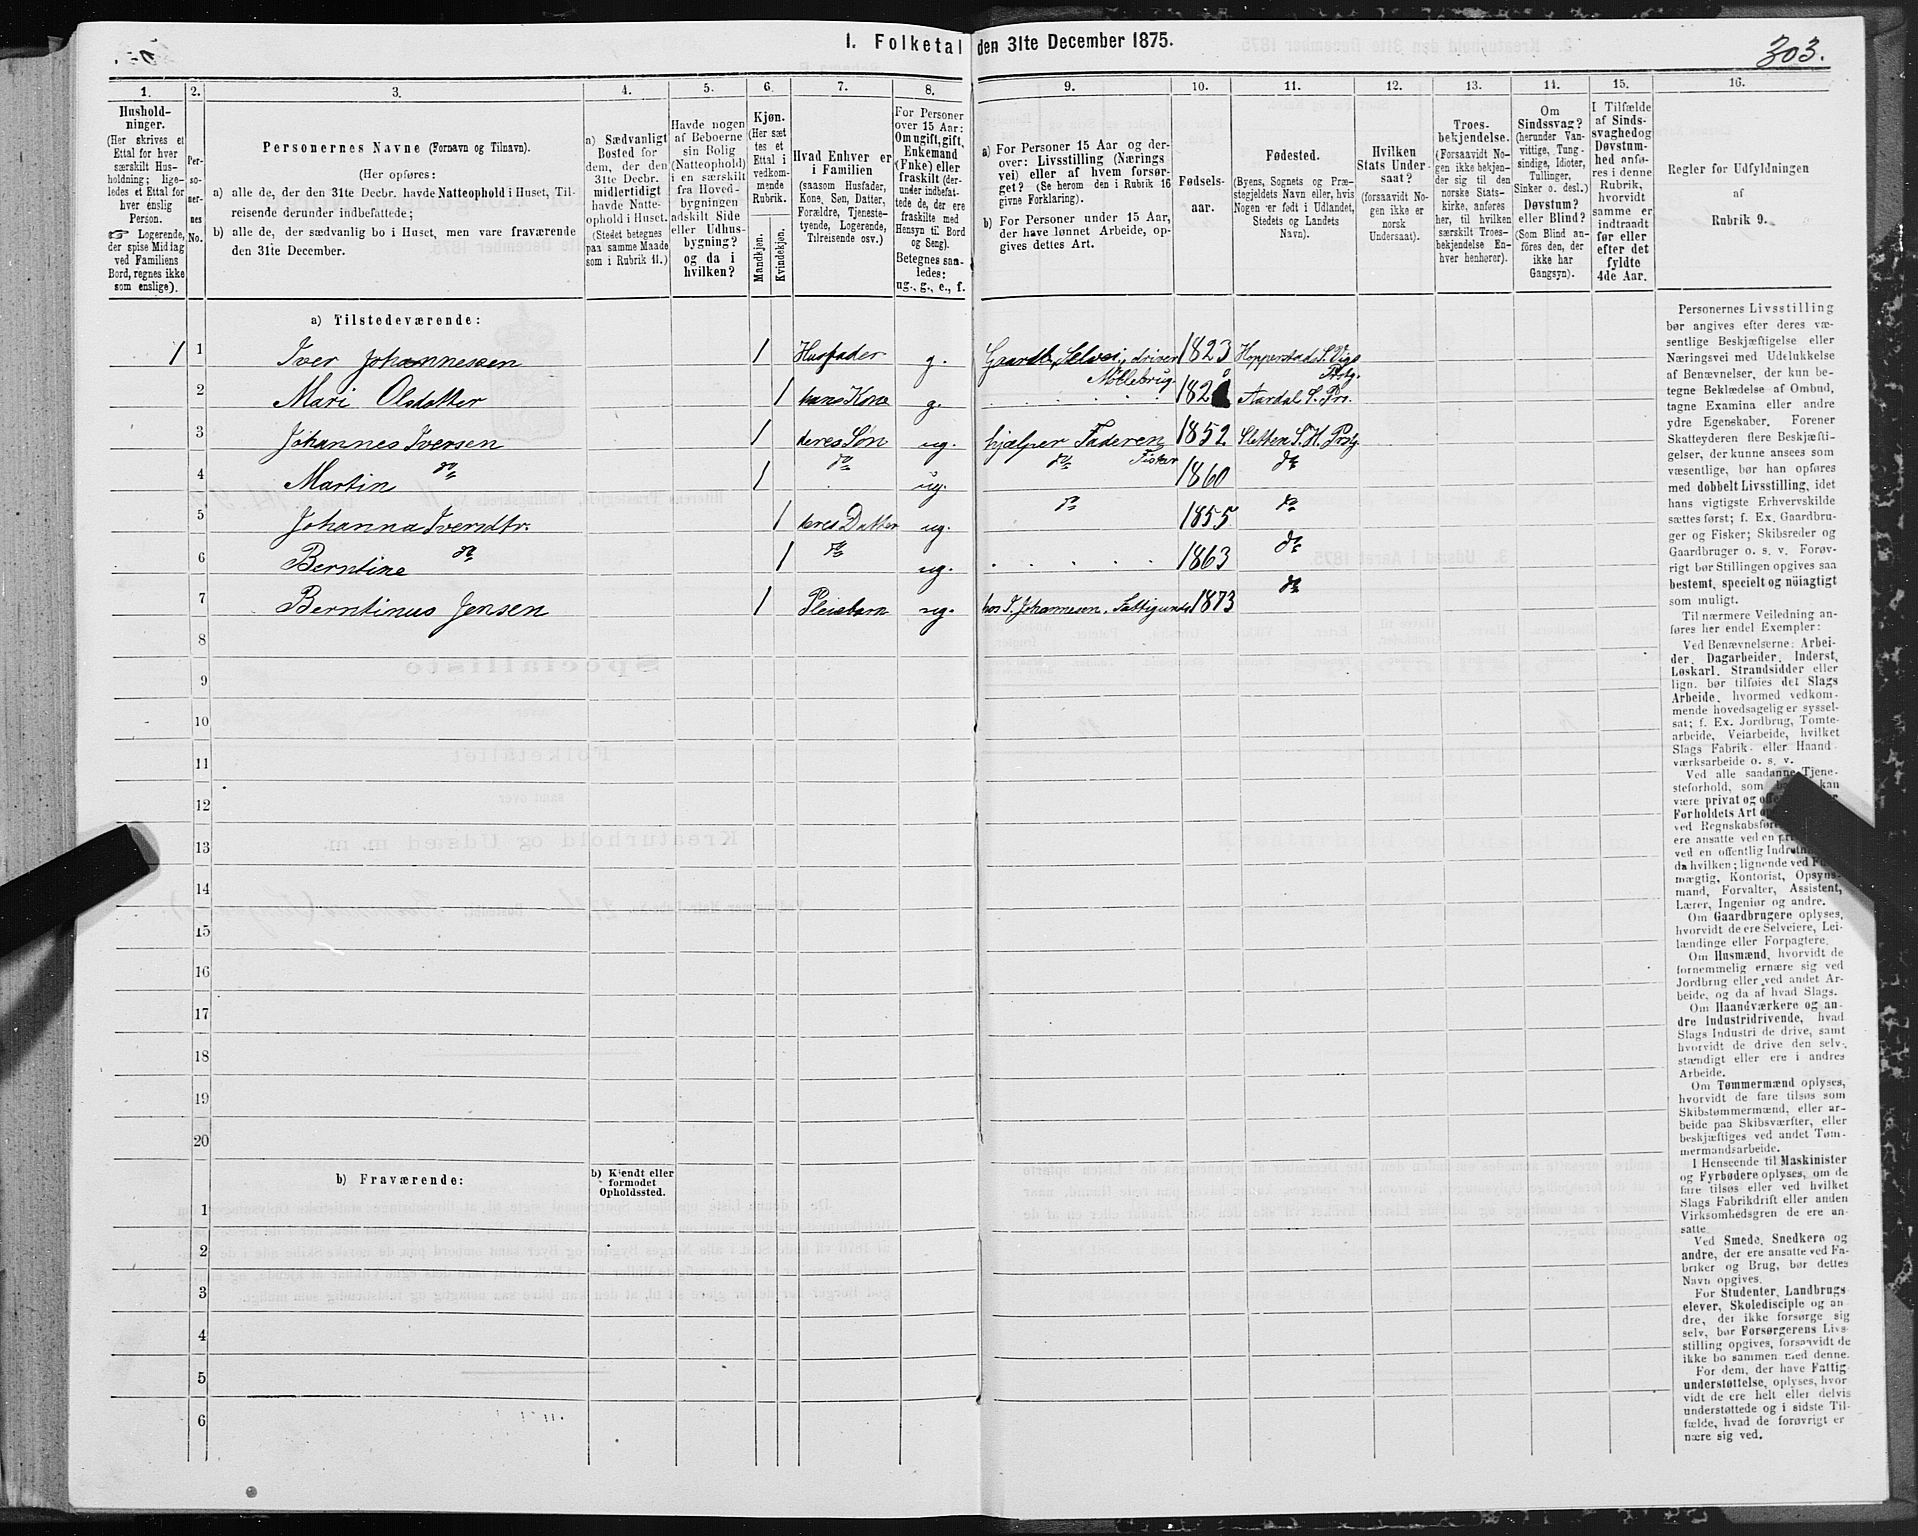 I. Folketal den 31te December 1875.
303.
1. 2. 3. 4. 5. 6. 7. 8. 9. 10. 11. 12. 13. 14. 15. 16.
Hushold-
ninger.
(Her skrives et
Ettal for hver
særskilt Hus-
holdning; lige-
ledes et Ettal for
hver enslig
Person.
☞ Logerende,
der spise Middag
ved Familiens
Bord, regnes ikke
som enslige).
Per-
so-
ner-
nes
No.
Personernes Navne (Fornavn og Tilnavn).
(Her opføres:
a) alle de, der den 31te Decbr. havde Natteophold i Huset, Til-
reisende derunder indbefattede;
b) alle de, der sædvanlig bo i Huset, men vare fraværende
den 31te December.
a) Sædvanligt
Bosted for
dem, der den
31te Decbr.
midlertidigt
havde Natte-
ophold i Huset.
(Stedet betegnes
paa samme Maade
som i Rubrik 11.)
Havde nogen
af Beboerne
sin Bolig
(Natteophold)
i en særskilt
fra Hoved-
bygningen
adskilt Side
eller Udhus-
bygning?
og da i
hvilken?
Kjøn.
(Her sæt
tes et
Ettal i
vedkom-
mende
Rubrik.
Mandkjøn.
Kvindekjøn.
Hvad Enhver er
i Familien
(saasom Husfader,
Kone, Søn, Datter,
Forældre, Tjeneste-
tyende, Logerende,
Tilreisende osv.)
For Personer
over 15 Aar:
Om ugift, gift,
Enkemand
(Enke) eller
fraskilt (der-
under indbefat-
tede de, der ere
fraskilte med
Hensyn til Bord
og Seng).
Betegnes saa-
ledes:
ug., g., e., f.
a) For Personer 15 Aar og der-
over: Livsstilling (Nærings
vei) eller af hvem forsør-
get? (Se herom den i Rubrik 16
givne Forklaring).
b) For Personer under 15 Aar,
der have lønnet Arbeide, op-
gives dettes Art.
Fødsels-
aar.
Fødested.
(Byens, Sognets og Præ-
stegjeldets Navn eller, hvis
Nogen er født i Udlandet,
Stedets og Landets
Navn).
Hvilken
Stats Under-
saat?
(forsaavidt No-
gen ikke er
norsk
Undersaat).
Troes-
bekjendelse.
(Forsaavidt No-
gen ikke bekjen-
der sig til den
norske Stats-
kirke, anføres
her, til hvilken
særskilt Troes-
bekjendelse En-
hver henhører).
Om
Sindssvag?
(herunder Van-
vittige, Tung-
sindige, Idioter,
Tullinger,
Sinker o. desl.)
Døvstum?
eller Blind?
(Som Blind an-
føres den, der
ikke har
Gangsyn).
I Tilfælde
af Sinds-
svaghed og
Døvstum-
hed anfø-
res i denne
Rubrik,
hvorvidt
samme er
indtraadt
før eller
efter det
fyldte
4de Aar.
Regler for Udfyldningen
af
Rubrik 9.
a) Tilstedeværende:
1 1 Iver Johannessen 1 Husfader g. Gaardb. Selvei., driver Møllebrug. 1823 Hopperstad S. Vigs Prstg.
2 Mari Olsdatter 1 hans Kone g. Aardal S. Pr.
3 Johannes Iversen 1 deres Søn ug. hjælper Faderen Fisker 1852 Sletten S. H. Prstg.
4 Martin do 1 do ug. do 1860 do
5 Johanna Iversdtr. 1 deres Datter ug. do 1855 do
6 Berntine do 1 do ug. 1863 do
7 Berntinus Jensen 1 Pleiebarn ug. hos I. Johannesen. Fattigunds 1873 do
8
9
10
11
12
13
14
15
16
17
18
19
20
b) Fraværende:
b) Kjendt eller
formodet
Opholdssted.
1
2
3
4
5
6
Personernes Livsstilling
bør angives efter deres væ-
sentlige Beskjæftigelse eller
Næringsvei med Udelukkelse
af Benævnelser, der kun be-
tegne Beklædelse af Ombud,
tagne Examina eller andre
ydre Egenskaber. Forener
Skatteyderen flere Beskjæfti-
gelser, der kunne ansees som
væsentlige, bør han opføres
med dobbelt Livsstilling, idet
hans vigtigste Erhvervskilde
sættes først; f. Ex. Gaardbru-
ger og Fisker; Skibsreder og
Gaardbruger o. s. v. Forøv-
rigt bør Stillingen opgives saa
bestemt, specielt og nöiagtigt
som muligt.
Til nærmere Veiledning an-
føres her endel Exempler:
Ved Benævnelserne: Arbei-
der, Dagarbeider, Inderst,
Løskarl, Strandsidder eller
lign. bør tilføies det Slags
Arbeide, hvormed vedkom-
mende hovedsagelig er syssel-
sat; f. Ex. Jordbrug, Tomte-
arbeide, Veiarbeide, hvilket
Slags Fabrik- eller Haand
værksarbeide o. s. v.
Ved alle saadanne Tjene-
steforhold, som kan
være privat og
Forholdets Art
ved Regnskabsfør
ere ansatte ved en
ved en offentlig Indretn
da hvilken; lignende ved
mægtig, Kontorist, Opsyns-
mand, Forvalter, Assistent,
Lærer, Ingeniør og andre.
Om Gaardbrugere oplyses,
hvorvidt de ere Selveiere, Lei-
lændinge eller Forpagtere.
Om Husmænd, hvorvidt de
fornemmelig ernære sig ved
Jordbrug eller ved andet Ar-
beide, og da af hvad Slags.
Om Haandværkere og an-
dre Industridrivende, hvad
Slags Industri de drive, samt
hvorvidt de drive den selv-
stændigt eller ere i andres
Arbeide.
Om Tømmermænd oplyses,
hvorvidt de fare tilsøs som
Skibstømmermænd, eller ar-
beide paa Skibsværfter, eller
beskjæftiges ved andet Tøm-
mermandsarbeide.
I Henseende til Maskinister
og Fyrbødere oplyses, om de
fare tilsøs eller ved hvilket
Slags Fabrikdrift eller anden
Virksomhedsgren de ere an-
satte.
Ved Smede, Snedkere og
andre, der ere ansatte ved Fa-
briker og Brug, bør dettes
Navn opgives.
For Studenter, Landbrugs-
elever, Skoledisciple og an
dre, der ikke forsørge sig
selv, bør Forsørgerens Livs-
stilling opgives, forsaavidt de
ikke bo sammen med denne.
For dem, der have Fattig-
understøttelse, oplyses, hvor-
vidt de ere helt eller delvis
understøttede og i sidste Til-
fælde, hvad de forøvrigt er
nære sig ved.